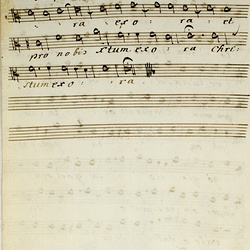 ra exo: ra et
pro nobis xtum exo: ra Chri:
stum exo: ra